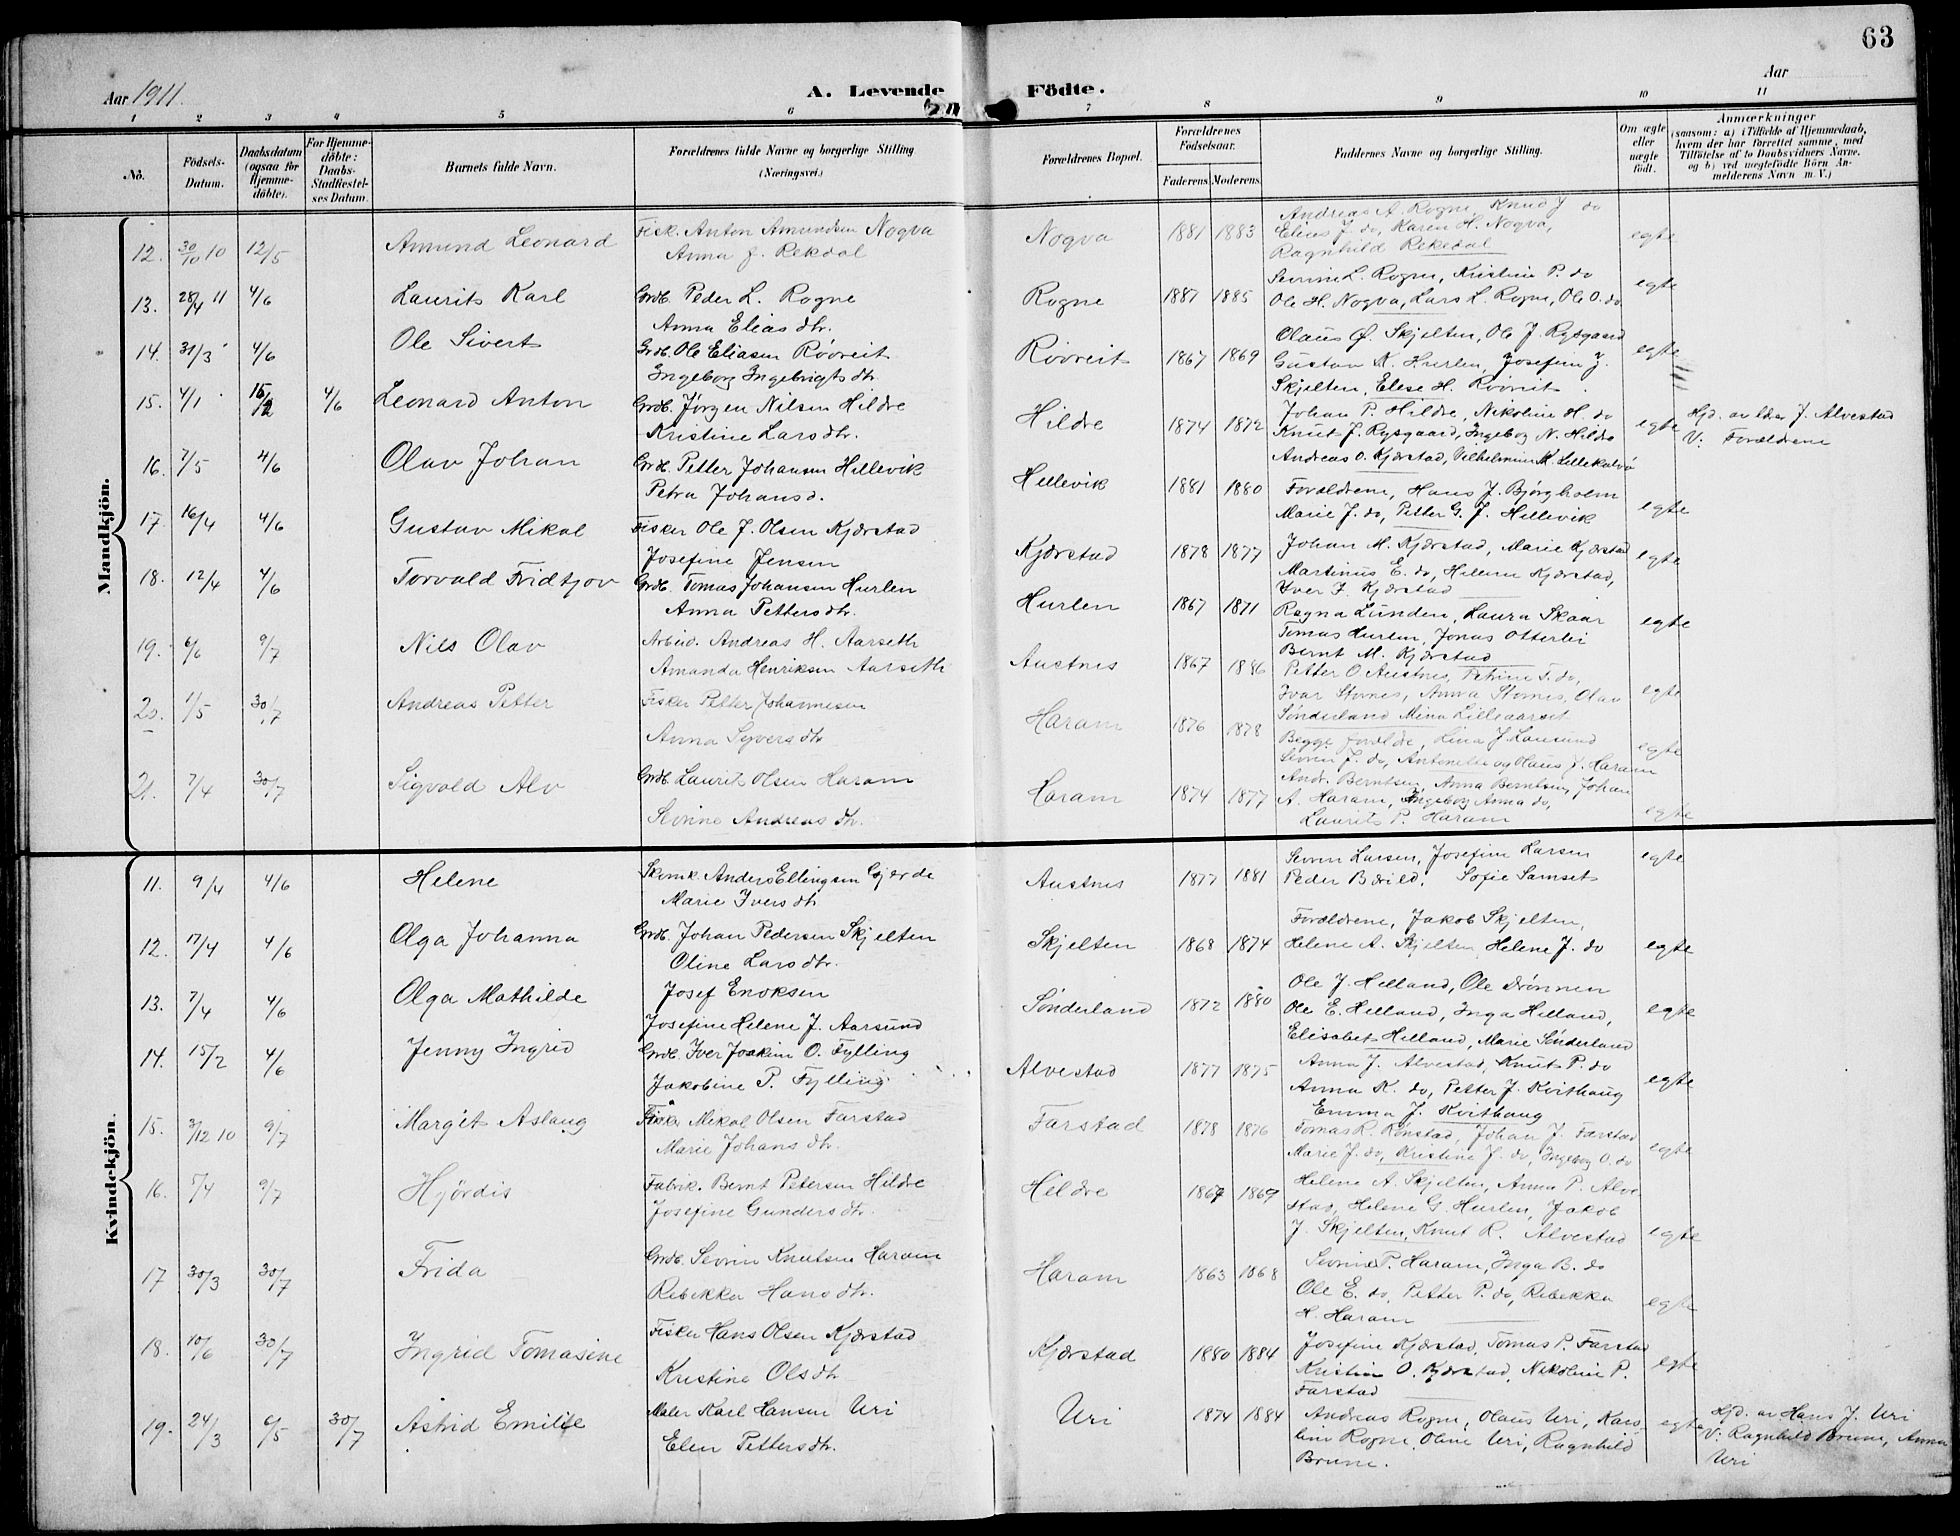 63
Aar 1911.
A. Levende Födte.
Aar
1 2 3 4 5 6 7 8 9 10 11
No.
Födsels-Datum.
Daabsdatum (ogsaa for Hjemme-döbte).
For Hjemme-döbte: Daabs-Stadfæstel-ses Datum.
Barnets fulde Navn.
Forældrenes fulde Navne og borgerlige Stilling (Næringsvei.)
Forældrenes Bopæl.
Forældrenes Födselsaar.
Faderens. Moderens.
Faddernes Navne og borgerlige Stilling.
Om ægte eller uægte födt.
Anmærkninger
(saasom: a) i Tilfælde af Hjemmedaab,
hvem der har forrettet samme, med
Tilföielse af to Daabsvidners Navne.
og b) ved uægtefödte Börn An-
melderens Navn m. V.)
Mandkjön.
12. 30/10 10 12/5 Amund Leonard Fisk. Anton Amundsen Nogva Nogva 1881 1883 Andreas A. Rogne, Knud J do egte
Anna J. Rekdal Elias J. do, Karen H. Nogva,
Ragnhild Rekedal
13. 28/4 11 4/6 Laurits Karl Grdb. Peder L. Rogne Rogne 1887 1885 Sevrine L. Rogne, Kristine P. do egte
Anna Eliasdtr. Ole H. Nogva, Lars L. Rogne, Ole O. do
14. 31/3 4/6 Ole Sivert Grdb. Ole Eliasen Røsveit Røsveit 1867 1869 Olaus Ø. Skjelten, Ole J. Rysgaard egte
Ingeborg Ingebrigtsdtr. Gustav K. Hurlen, Josefine J.
Skjelten, Elese H. Røsveit
15. 4/1 15/2 4/6 Leonard Anton Grdb. Jørgen Nilsen Hildre Hildre 1874 1872 Johan P. Hildre, Nikoline H. do egte Hjd. av J. Alvestad
Kristine Larsdtr. Knut J. Rysgaard, Ingeborg N. Hildre V: Forældrene
Andreas O. Kjærstad, Vilhelmine M. Lillekalvø
16. 7/5 4/6 Olav Johan Grdb. Petter Johansen Hellevik Hellevik 1881 1880 Forældrene, Hans J. Bjørgholm egte
Petra Johansd. Marie J. do, Petter G. J. Hellevik
17 16/4 4/6 Gustav Mikal Fisker Ole J. Olsen Kjærstad Kjærstad 1878 1877 Johan M. Kjærstad, Marie Kjærstad egte
Josefine Jensen Martinus E. do, Helene Kjærstad,
Iver J. Kjærstad
18. 12/4 4/6 Torvald Fridtjov Grdb. Tomas Johansen Hurlen Hurlen 1867 1871 Ragna Lunden, Laura Skaar egte
Anna Pettersdtr. Tomas Hurlen, Jonas Otterlei
Bernt M. Kjærstad
19. 6/6 9/7 Nils Olav Arbeid. Andreas H. Aarseth Austnes 1867 1886 Petter O Austnes, Petrine T. do, egte
Amanda Henriksen Aarseth Ivar Stornes, Anna Stornes, Olav
Sønderland Mina Lilleaarset
20. 1/5 30/7 Andreas Petter Fisker Petter Johannesen Haram 1876 1878 Begge forældre, Lina J. Lausund egte
Anna Syversdtr Sevrin J. do, Antonette og Olaus J. Haram
21. 7/4 30/7 Sigvald Alv Grdb. Laurits Olsen Haram Haram 1874 1877 Andr. Berntsen, Anna Berntsen, Johan egte
Sevrine Andreasdtr. A. Haram, Ingeborg Anna do,
Laurits P. Haram
Kvindekjön.
11. 9/4 4/6 Helene Skomk. Anders Ellingsen Gjerde Austnes 1877 1881 Sevrin Larsen, Josefine Larsen egte
Marie Iversdtr Peder Bærild, Sofie Samset
12. 17/4 4/6 Olga Johanna Grdb. Johan Pedersen Skjelten Skjelten 1868 1874 Forældrene, Jakob Skjelten, egte
Oline Larsdtr. Helene A. Skjelten, Helene J. do
13. 7/4 4/6 Olga Mathilde Josef Enoksen Sønderland 1872 1880 Ole J. Helland, Ole Drønnen egte
Josefine Helene J. Aarsund Ole E. Helland, Inga Helland,
Elisabet Helland, Marie Sønderland
14. 15/2 4/6 Jenny Ingrid Grdb. Iver Joakim O. Fylling Alvestad 1877 1875 Anna J. Alvestad, Knut P. do egte
Jakobine P. Fylling Anna K. do, Petter J. Kvithaug
Emma J. Kvithaug
15. 3/12 10 9/7 Margit Aslaug Fisker Mikal Olsen Farstad Farstad 1878 1876 Tomas R. Rønstad, Johan J. Farstad egte
Marie Johansdtr. Marie J. do, Kristine J. do, Ingeborg O. do
16. 5/4 9/7 Hjördis Fabrik. Bernt Petersen Hildre Hildre 1867 1869 Helene A. Skjelten, Anna P. Alve egte
Josefine Gundersdtr. stad, Helene G. Hurlen, Jakob
J. Skjelten, Knut R. Alvestad
17 30/3 30/7 Frida Grdb. Sevrin Knutsen Haram Haram 1863 1868 Sevrine P. Haram, Inga B. do egte
Rebekka Hansdtr. Ole E. do, Petter P. do, Rebekka
H. Haram
18. 10/6 30/7 Ingrid Tomasine Fisker Hans Olsen Kjærstad Kjærstad 1880 1884 Josefine Kjærstad, Tomas P. Farstad egte
Kristine Olsdtr Kristin O. Kjærstad, Nikoline P.
Farstad
19. 24/3 6/5 30/7 Astrid Emilie Maler Karl Hansen Uri Uri 1874 1884 Andreas Rogne, Olaus Uri, Karo egte Hjd. av Hans J. Uri
Elen Pettersdtr. line Rogne, Oline Uri, Ragnhild V: Ragnhild Brune, Anna
Brune. Uri